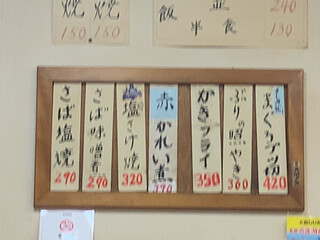 焼 焼
150 150
並
飯
半食
240
130
まぐろブツ切
420
ぶりの照やき
360
かきフライ
350
赤かれい煮
370
塩さけ焼
320
さば味噌煮
290
さば塩焼
290